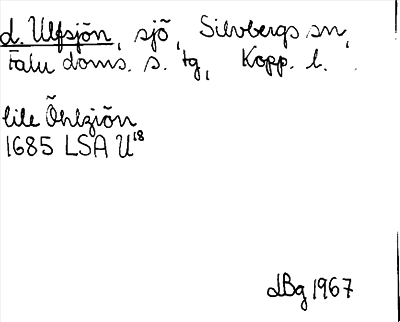 d. Ulfsjön, sjö, Silvbergs sn,
Falu doms. s. tg, Kopp. l.
lile Öhlziön
1685 LSA U18
dBg 1967